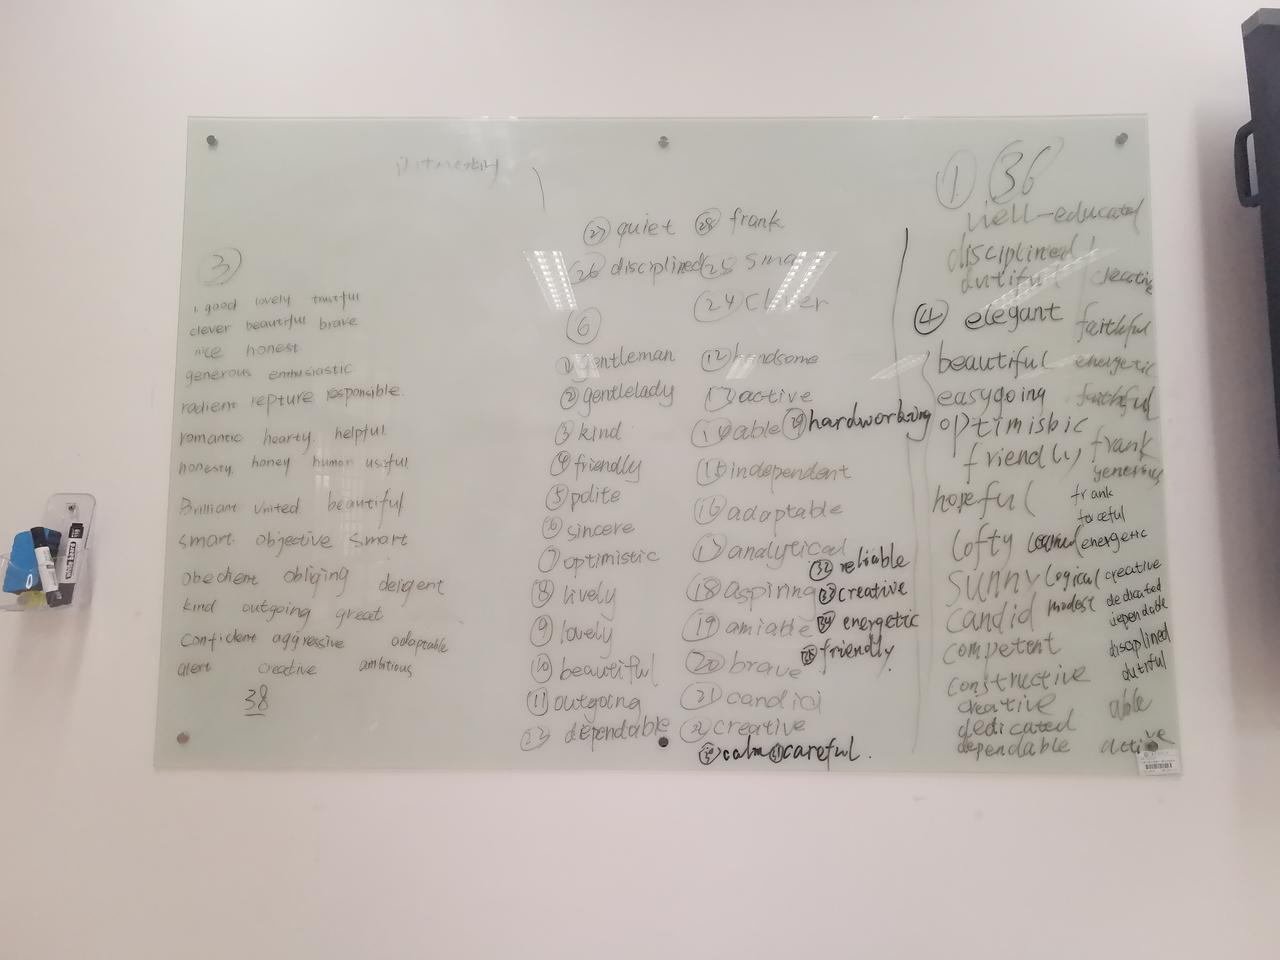 ③
1, good lovely trustful
clever beautiful brave
nice honest
generous enthusiastic
radient repture responsible.
romantic hearty. helpful
honesty. honey human useful
Brilliant united beautiful
smart. objective smart
obedient obliging deligent
kind outgoing great
confident aggressive adaptable
alert creative ambitious
38
㉗ quiet ㉘ frank
㉖ disciplined ㉕ sma
㉔ Clever
⑥
① gentleman ⑫ handsome
② gentlelady 13 active
③ kind ⑭ able ㉙ hardworking
④ friendly ⑮ independent
⑤ polite ⑯ adaptable
⑥ sincere ⑰ analytical
⑦ optimistic ㉜ reliable
⑧ lively ⑱ aspiring ㉝ creative
⑨ lovely ⑲ amiable ㉞ energetic
⑩ beautiful ⑳ brave ㉟ friendly
⑪ outgoing ㉑ candid
㉓ dependable ㉒ creative
㉚ calm ㉛ careful.
① ㊱
well-educated
disciplined
dutiful creative
④ elegant faithful
beautiful energetic
easygoing faithful
optimisbic
friendly frank
generous
hopeful frank
forceful
lofty learned energetic
sunny logical creative
candid modest dedicated
dependable
competent disciplined
constructive dutiful
creative able
dedicated
dependable active